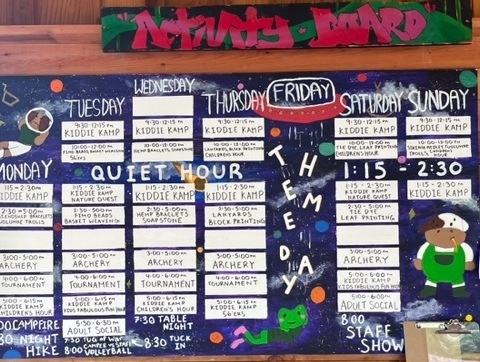 Activity Board
MONDAY
1:15 - 2:30
KIDDIE KAMP
2:30-5:00
3:00
ARCHERY
4:00-6:00
TOURNAMENT
KIDDIE KAMP
CHILDREN'S HOUR
CAMPFIRE
8:30 NIGHT
HIKE
TUESDAY
9:30-12:15 PM
KIDDIE KAMP
10:00-12:00
FIMO BEADS BASKET WEAVING
5CKS
WEDNESDAY
9:30-12:15 PM
KIDDIE KAMP
10:00-12:00
HEMP BRACELETS SOAPSTONE
THURSDAY
9:30-12:15 PM
KIDDIE KAMP
10:00-12:00
LANYARDS, BLOCK PRINTING
CHILDREN'S HOUR
FRIDAY
THEME DAY
SATURDAY
9:30-12:15 PM
KIDDIE KAMP
10:00-12:00
TIE DYE LEAF PRINTING
CHILDREN'S HOUR
SUNDAY
9:30-12:15 PM
KIDDIE KAMP
10:00-12:00
CHILDREN'S HOUR
QUIET HOUR
1:15 - 2:30
1:15 - 2:30
KIDDIE KAMP
NATURE QUEST
2:30-5:00
FIMO BEADS
BASKET WEAVING
3:00
ARCHERY
4:00-6:00
TOURNAMENT
KIDDIE KAMP
KIDS FABULOUS FUN HOUR
5:30-6:30
ADULT SOCIAL
7:30 TUG OF WAR
CAMPER VS STAFF
8:00 VOLLEYBALL
1:15 - 2:30
KIDDIE KAMP
2:30-5:00
HEMP BRACLETS
SOAPSTONE
3:00
ARCHERY
4:00-6:00
TOURNAMENT
KIDDIE KAMP
CHILDREN'S HOUR
7:30 TABLE
NIGHT
8:30 TUCK
IN
1:15 - 2:30
KIDDIE KAMP
2:30-5:00
LANYARDS
BLOCK PRINTING
3:00
ARCHERY
4:00-6:00
TOURNAMENT
KIDDIE KAMP
5CKS
1:15 - 2:30
KIDDIE KAMP
NATURE QUEST
2:30-5:00
TIE DYE
LEAF PRINTING
3:00
ARCHERY
5:00-6:00
KIDDIE KAMP
ADULT SOCIAL
8:00
STAFF
SHOW
1:15 - 2:30
KIDDIE KAMP
KIDDIE KAMP
KIDS FABULOUS FUN HOUR